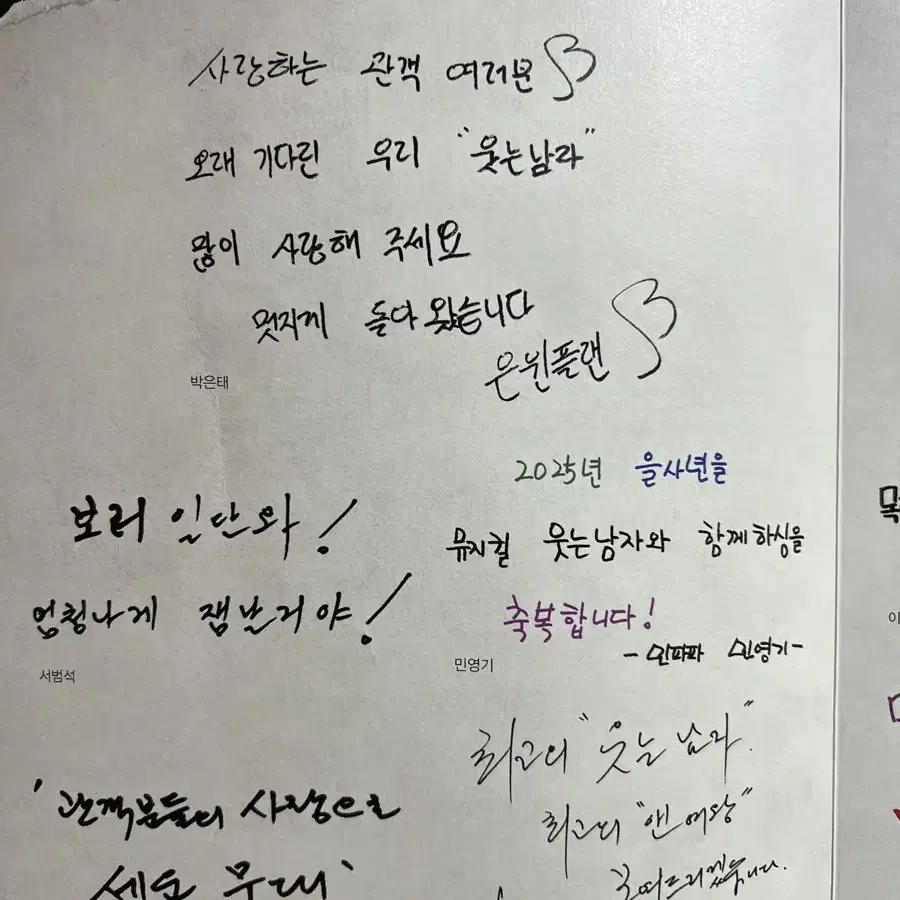 사랑하는 관객 여러분
오래 기다린 우리 "웃는남자"
많이 사랑해 주세요
멋지게 돌아왔습니다
은윈플랜
박은태
보러 일단와!
엄청나게 잼날거야!
서범석
2025년 을사년을
뮤지컬 웃는남자와 함께하심을
축복합니다!
- 민파파 민영기-
민영기
'관객분들의 사랑으로
무대'
최고의 "웃는 남자".
최고의 "앤 여왕"